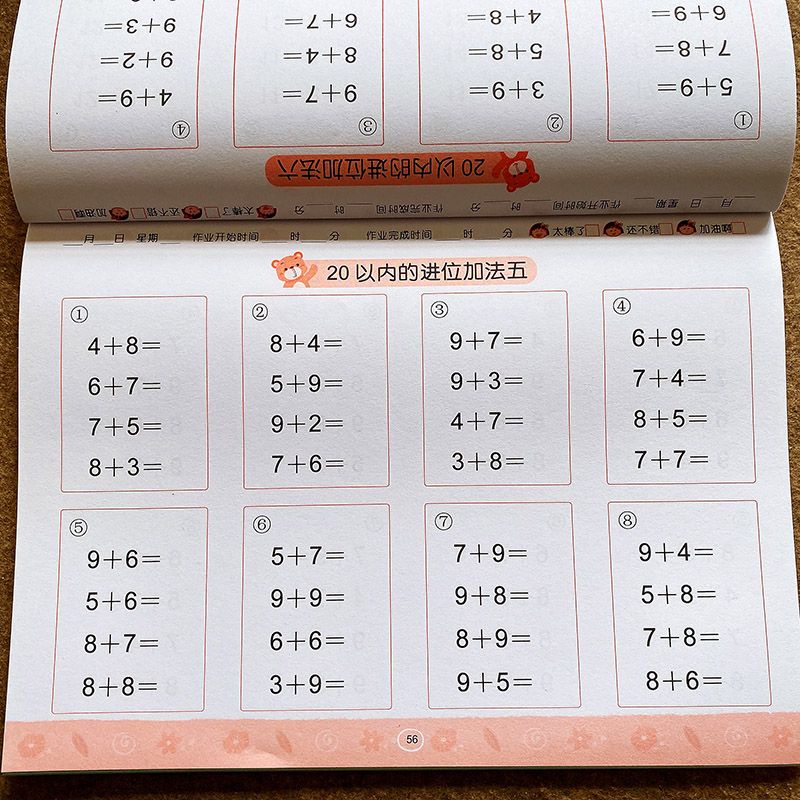 ___月___日 星期___ 作业开始时间___时___分 作业完成时间___时___分 太棒了 还不错 加油啊
20以内的进位加法六
①
5+9=
7+8=
6+9=
②
3+9=
5+8=
4+8=
③
9+7=
8+4=
6+7=
④
4+9=
9+2=
9+3=
___月___日 星期___ 作业开始时间___时___分 作业完成时间___时___分 太棒了 还不错 加油啊
20以内的进位加法五
①
4+8=
6+7=
7+5=
8+3=
②
8+4=
5+9=
9+2=
7+6=
③
9+7=
9+3=
4+7=
3+8=
④
6+9=
7+4=
8+5=
7+7=
⑤
9+6=
5+6=
8+7=
8+8=
⑥
5+7=
9+9=
6+6=
3+9=
⑦
7+9=
9+8=
8+9=
9+5=
⑧
9+4=
5+8=
7+8=
8+6=
56